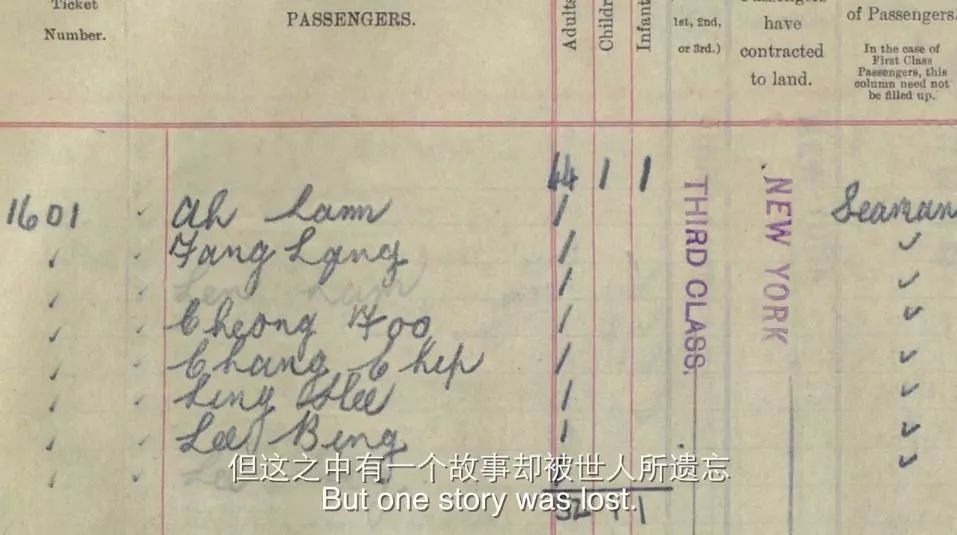 Ticket
Number.
PASSENGERS.
Adults
Childr
Infant
1st, 2nd,
or 3rd.)
Passengers
have
contracted
to land.
of Passengers.
In the case of
First Class
Passengers, this
column need not
be filled up.
44 1 1
1601 Ah Lam Seaman
Fang Lang
Len Lam
Cheong Foo
Chang Chip
Ling Hee
Lee Bing
THIRD CLASS.
NEW YORK
但这之中有一个故事却被世人所遗忘
But one story was lost.